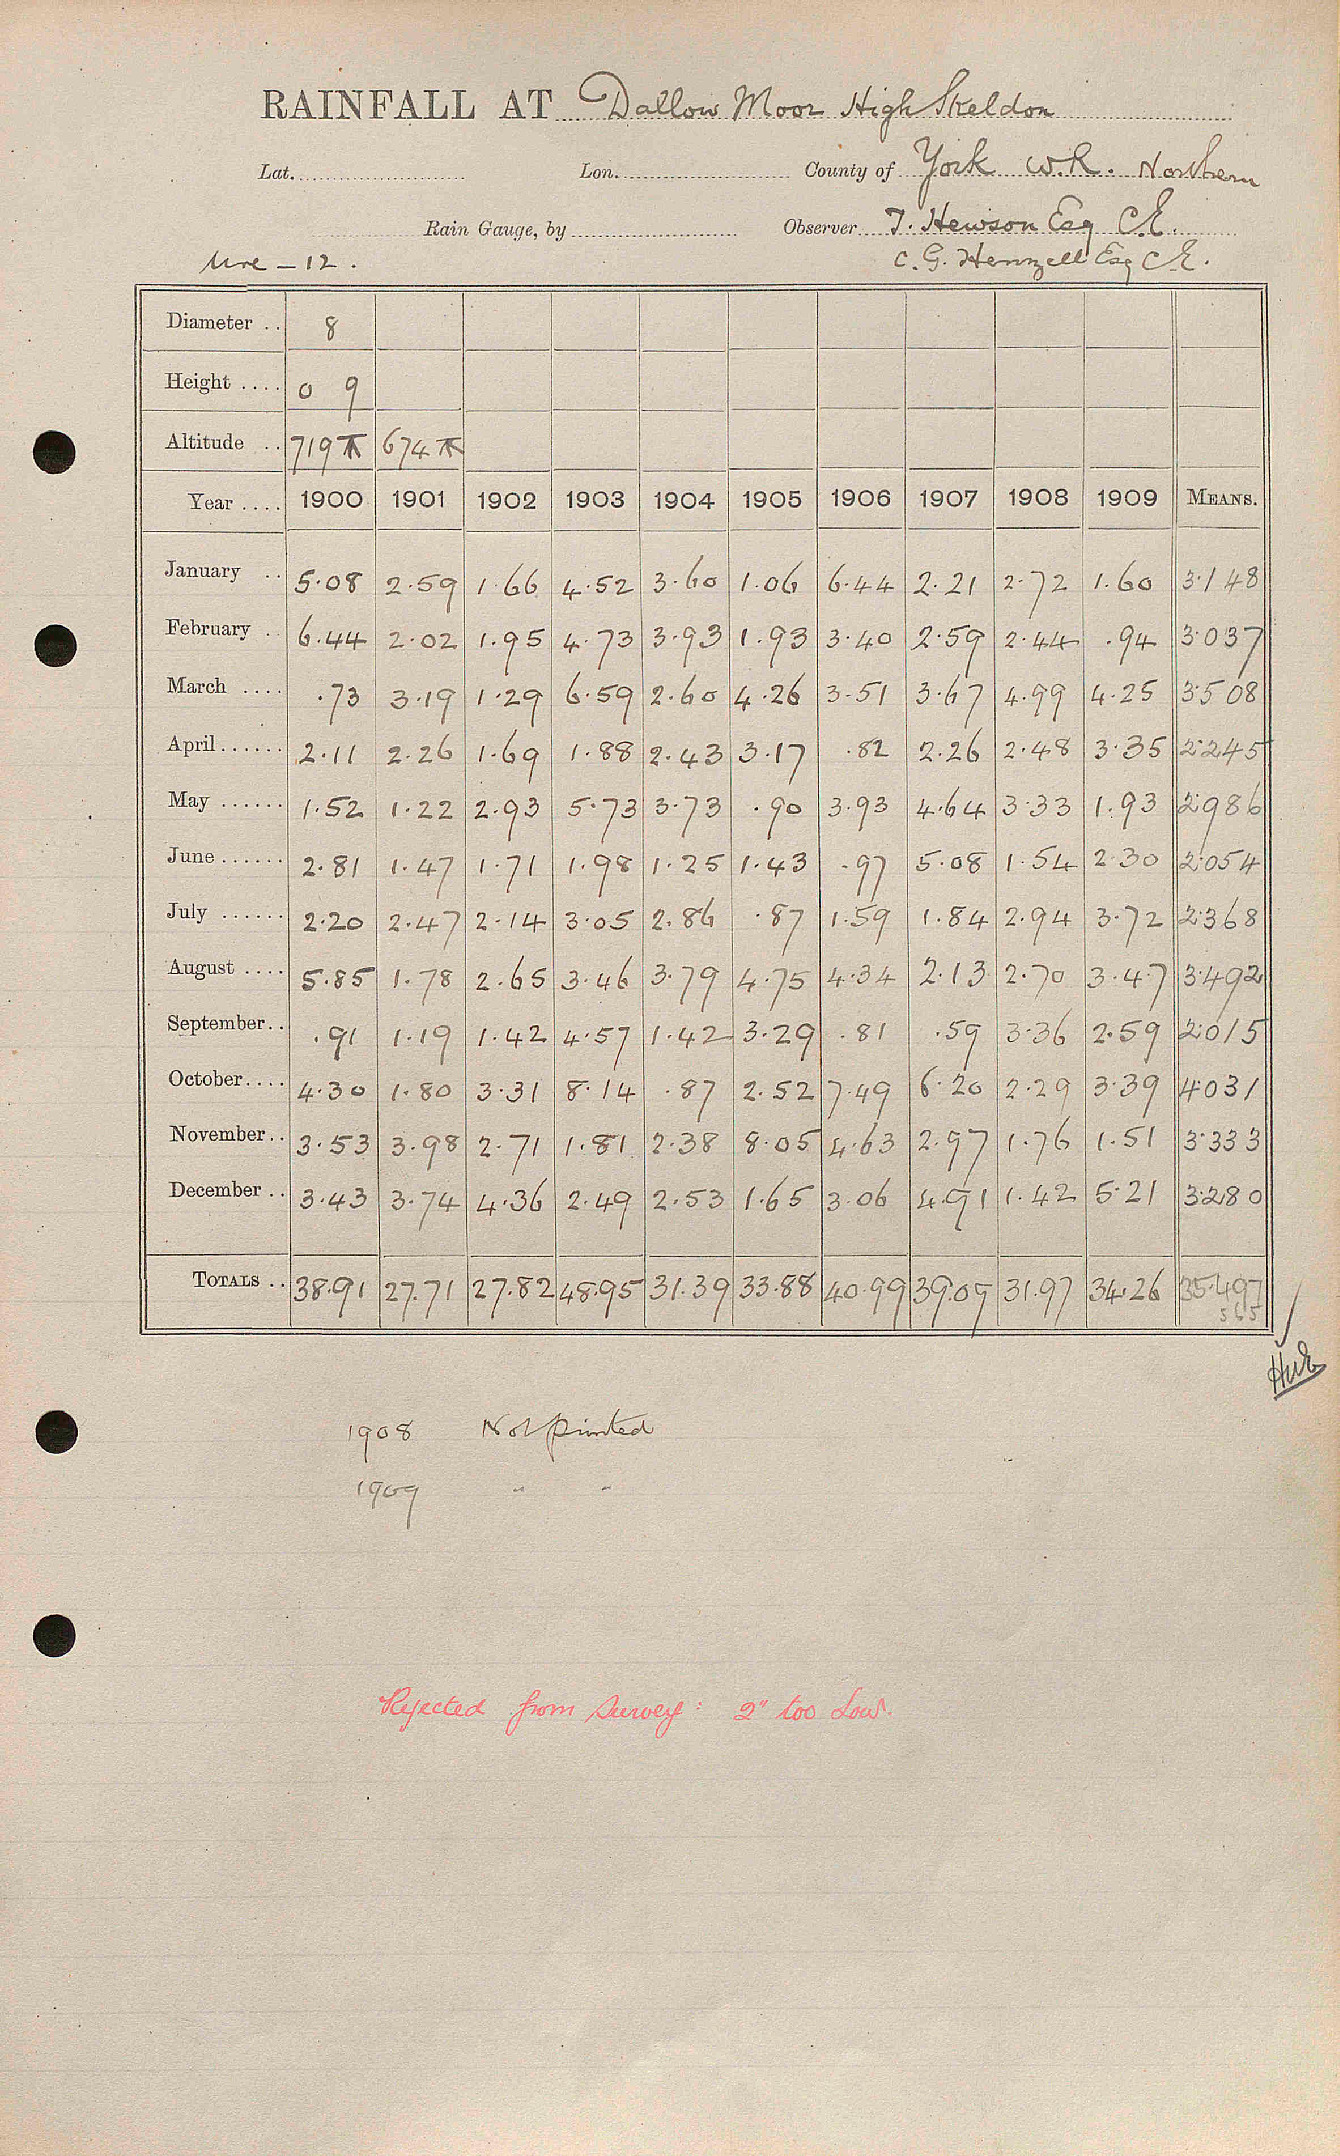 RAINFALL AT Dallow Moor High Skeldon
Lat. Lon. County of York W.R. Northern
Rain Gauge, by Observer T. Hewson Esq C.E.
Ure - 12. C. G. Henzell Esq C.E.
Diameter .. 8
Height .... 0 9
Altitude .. 719 674
Year .... 1900 1901 1902 1903 1904 1905 1906 1907 1908 1909 MEANS.
January .. 5.08 2.59 1.66 4.52 3.60 1.06 6.44 2.21 2.72 1.60 3.148
February .. 6.44 2.02 1.95 4.73 3.93 1.93 3.40 2.59 2.44 .94 3.037
March .... .73 3.19 1.29 6.59 2.60 4.26 3.51 3.67 4.99 4.25 3.508
April ...... 2.11 2.26 1.69 1.88 2.43 3.17 .82 2.26 2.48 3.35 2.245
May ...... 1.52 1.22 2.93 5.73 3.73 .90 3.93 4.64 3.33 1.93 2.986
June ...... 2.81 1.47 1.71 1.98 1.25 1.43 .97 5.08 1.54 2.30 2.054
July ...... 2.20 2.47 2.14 3.05 2.86 .87 1.59 1.84 2.94 3.72 2.368
August .... 5.85 1.78 2.65 3.46 3.79 4.75 4.34 2.13 2.70 3.47 3.492
September.. .91 1.19 1.42 4.57 1.42 3.29 .81 .59 3.36 2.59 2.015
October.... 4.30 1.80 3.31 8.14 .87 2.52 7.49 6.20 2.29 3.39 4.031
November.. 3.53 3.98 2.71 1.81 2.38 8.05 4.63 2.97 1.76 1.51 3.333
December .. 3.43 3.74 4.36 2.49 2.53 1.65 3.06 4.91 1.42 5.21 3.280
TOTALS .. 38.91 27.71 27.82 48.95 31.39 33.88 40.99 39.09 31.97 34.26 35.497
565
1908 Not printed
1909 " "
Rejected from Survey: 2" too Low.